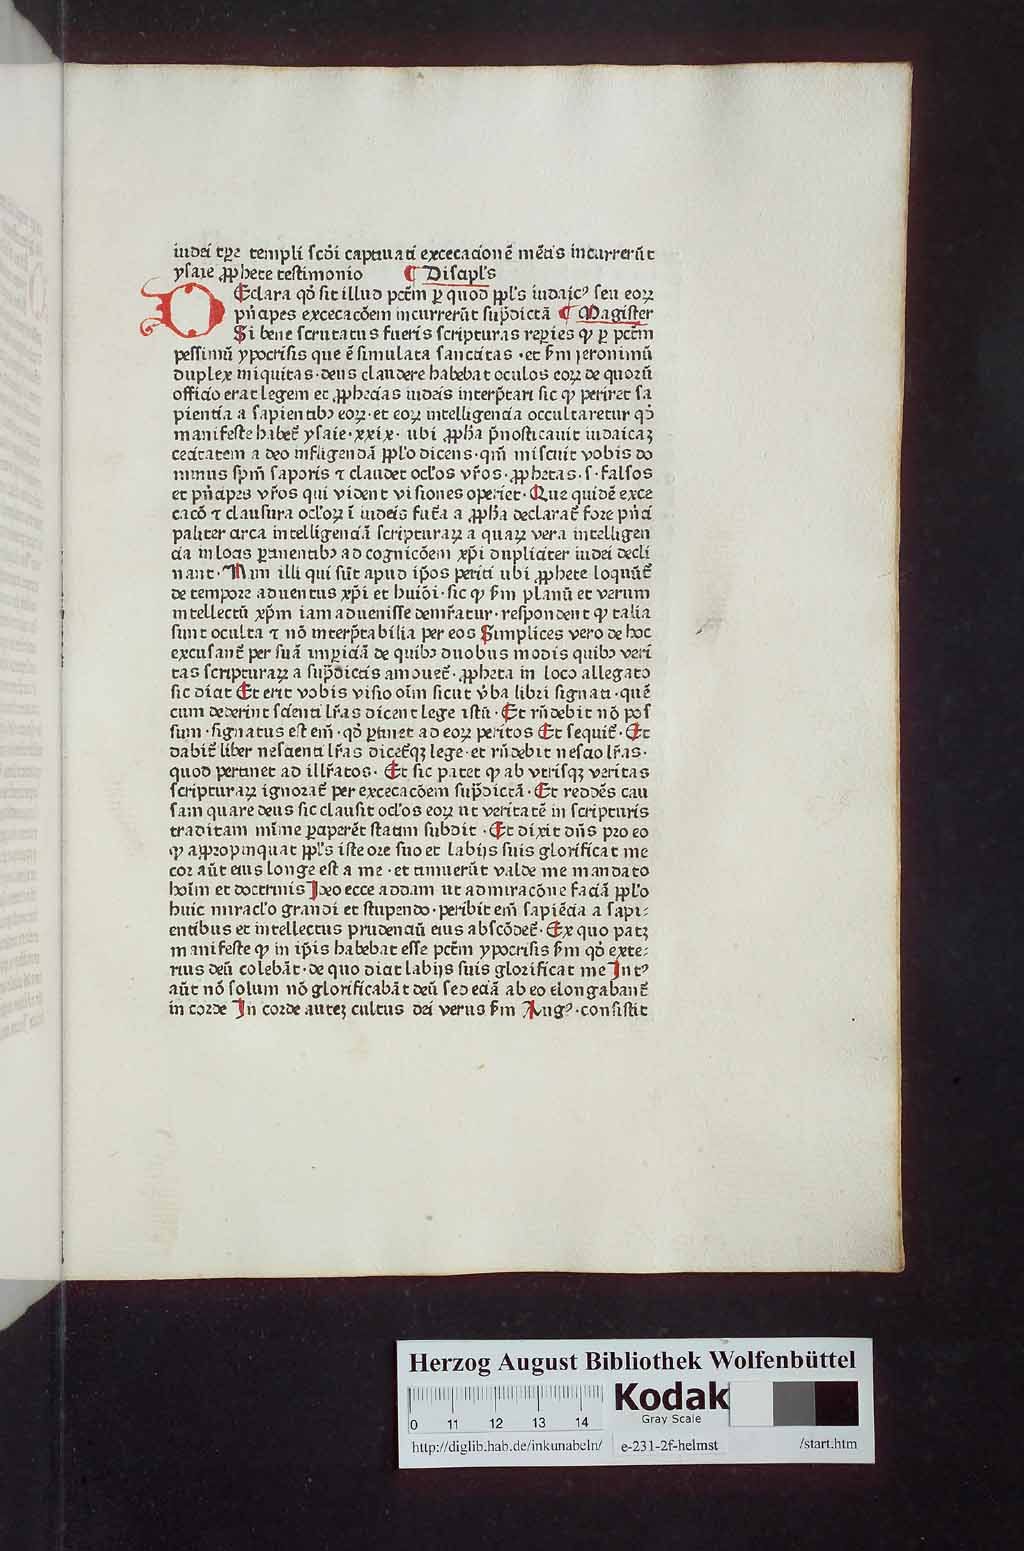 iudei tꝑe templi scd̄i captiuati excecacionē mētis incurrerūt
ysaie ꝓphete testimonio ¶ Discipl's
DEclara qd̓ sit illud pctm̄ ꝑ quod ppl's iudaic⁹ seu eoꝝ
pn̄cipes excecacōem incurrerūt sup̄dictā ¶ Magister
Si bene scrutatus fueris scripturas reꝑies ꝙ ꝑ pctm̄
pessimū ypocrisis que ē simulata sanctitas · et s̄m jeronimū
duplex iniquitas · deus claudere habebat oculos eoꝝ de quorū
officio erat legem et ꝓphecias iudeis interp̄tari sic ꝙ periret sa
pientia a sapientibꝫ eoꝝ · et eoꝝ intelligencia occultaretur qd̓
manifeste habet̄ ysaie · xxix · ubi ꝓph̄a p̄nosticauit iudaicaꝫ
cecitatem a deo infligendā ppl'o dicens · qm̄ miscuit vobis do
minus sp̄m saporis ⁊ claudet ocl'os vr̄os · ꝓphetas · s · falsos
et pn̄cipes vr̄os qui vident visiones operiet · Que quidē exce
cacō ⁊ clausura ocl'oꝝ ī iudeis fut̄a a ꝓph̄a declarat̄ fore pn̄ci
paliter circa intelligenciā scripturaꝝ a quaꝝ vera intelligen
cia in locis ꝑtinentibꝫ ad cognicōem xp̄i dupliciter iudei decli
nant · Nam illi qui sūt apud ip̄os periti ubi ꝓphete loqūt̄
de tempore aduentus xp̄i et huiōi · sic ꝙ s̄m planū et verum
intellectū xp̄m iam aduenisse demr̄atur · respondent ꝙ talia
sunt oculta ⁊ nō interp̄tabilia per eos Simplices vero de hoc
excusant̄ per suā imꝑiciā de quibꝫ duobus modis quibꝫ veri
tas scripturaꝝ a sup̄dictis amouet̄ · ꝓpheta in loco allegato
sic dicit Et erit vobis visio oīm sicut v̄ba libri signati · quē
cum dederint scienti lr̄as dicent lege istū · Et rn̄debit nō pos
sum · signatus est em̄ · qd̓ ꝑtinet ad eoꝝ peritos Et sequit̄ · Et
dabit̄ liber nescienti lr̄as dicet̄qꝫ lege · et rn̄debit nescio lr̄as ·
quod pertinet ad illr̄atos · Et sic patet ꝙ ab vtrisqꝫ veritas
scripturaꝝ ignorat̄ per excecacōem sup̄dictā · Et reddēs cau
sam quare deus sic clausit ocl'os eoꝝ ut veritatē in scripturis
traditam mīme ꝑciperēt statim subdit · Et dixit dn̄s pro eo
ꝙ appropinquat ppl's iste ore suo et labijs suis glorificat me
cor aūt eius longe est a me · et timuerūt valde me mandato
hoīm et doctrinis Ideo ecce addam ut admiracōne faciā ppl'o
huic miracl'o grandi et stupendo · peribit em̄ sapiēcia a sapi⸗
entibus et intellectus prudenciū eius abscōdet̄ · Ex quo patꝫ
manifeste ꝙ in ip̄is habebat esse pctm̄ ypocrisis s̄m qd̓ exte⸗
rius deū colebāt · de quo dicit labijs suis glorificat me Int⁹
aūt nō solum nō glorificabāt deū sed eciā ab eo elongabant̄
in corde In corde auteꝫ cultus dei verus s̄m Aug⁹ · consistit
Herzog August Bibliothek Wolfenbüttel
0 11 12 13 14
Kodak
Gray Scale
http://diglib.hab.de/inkunabeln/ e-231-2f-helmst /start.htm